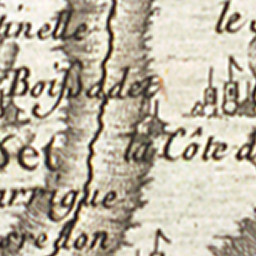 tinelle
le
Boissadet
set
la Côte d
arrigue
rredon